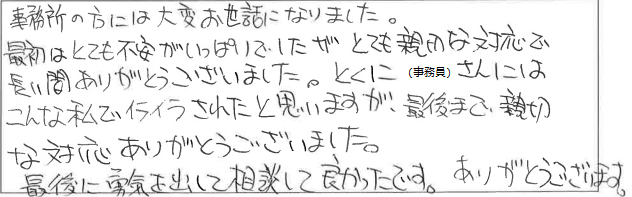 事務所の方には大変お世話になりました。
最初はとても不安がいっぱいでしたが とても親切な対応で
長い間ありがとうございました。とくに (事務員) さんには
こんな私でイライラされたと思いますが、最後まで、親切
な対応ありがとうございました。
最後に勇気を出して相談して良かったです。ありがとうございます。